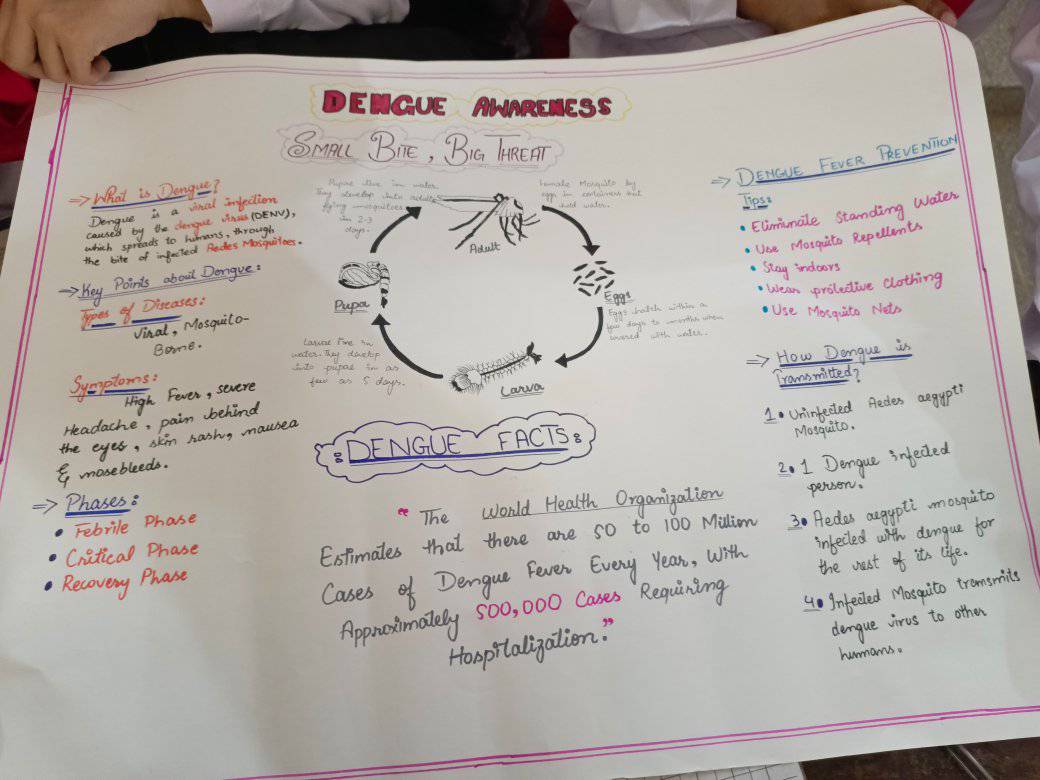 DENGUE AWARENESS
SMALL BITE, BIG THREAT
⇒ What is Dengue?
Dengue is a viral infection
caused by the dengue virus (DENV),
which spreads to humans, through
the bite of infected Aedes Mosquitoes.
⇒ Key Points about Dengue:
Types of Diseases:
Viral, Mosquito-
Borne.
Symptoms:
High Fever, severe
Headache, pain behind
the eyes, skin rash, nausea
& nosebleeds.
⇒ Phases:
• Febrile Phase
• Critical Phase
• Recovery Phase
Pupae live in water.
They develop into adult
flying mosquitoes
in 2-3
days.
Adult
Female Mosquito by
eggs in containers that
hold water.
Eggs
Eggs hatch within a
few days to months when
covered with water.
Larva
Larvae live in
water. They develop
into pupae in as
few as 5 days.
Pupa
:DENGUE FACTS:
"The World Health Organization
Estimates that there are 50 to 100 Million
Cases of Dengue Fever Every Year, With
Approximately 500,000 Cases Requiring
Hospitalization."
⇒ DENGUE FEVER PREVENTION
Tips:
• Eliminate Standing Water
• Use Mosquito Repellents
• Stay indoors
• Wear protective clothing
• Use Mosquito Nets
⇒ How Dengue is
Transmitted?
1. Uninfected Aedes aegypti
Mosquito.
2. 1 Dengue infected
person.
3. Aedes aegypti mosquito
infected with dengue for
the rest of its life.
4. Infected Mosquito transmits
dengue virus to other
humans.